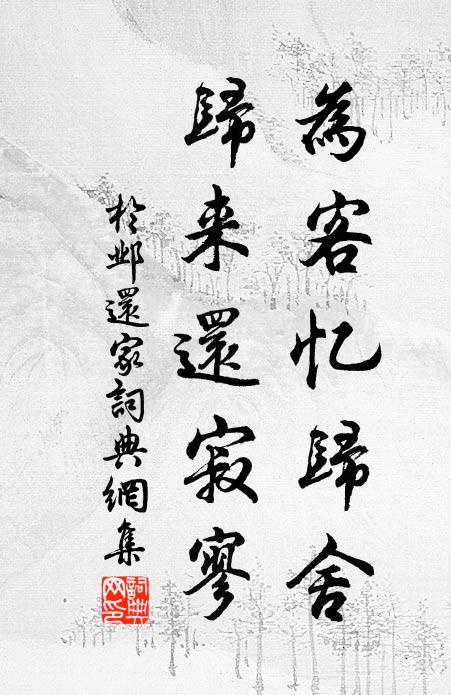 為客忆歸舍
歸来還寂寥
於邺還家詞典網集
詞典